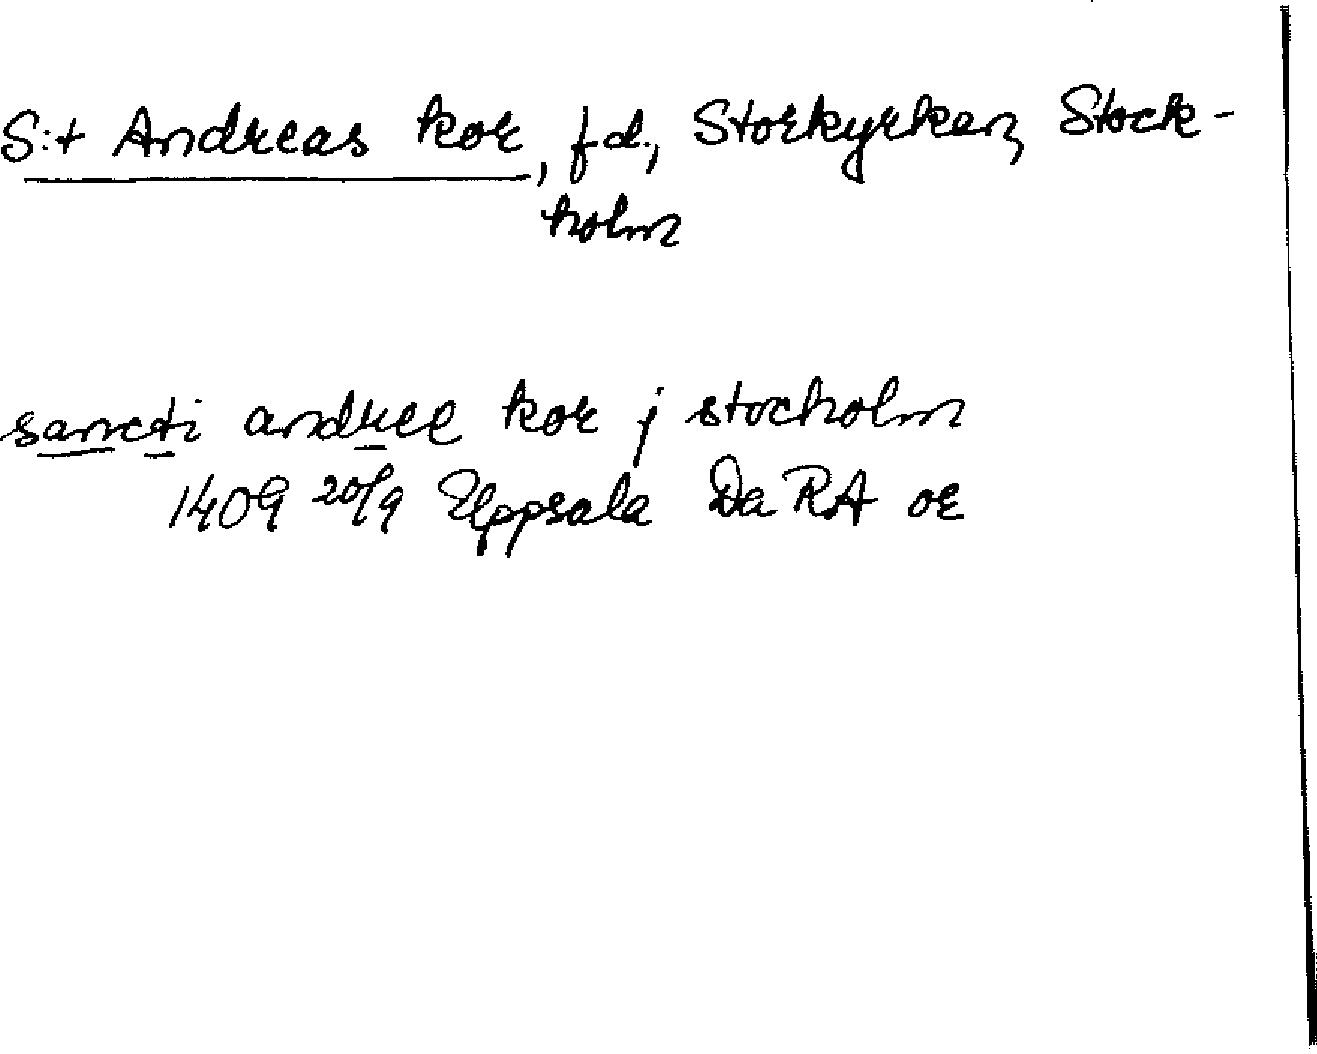 S:t Andreas kor, f.d., Storkyrkan, Stock-
holm
sancti andree kor j stocholm
1409 20/9 Uppsala Da RA or